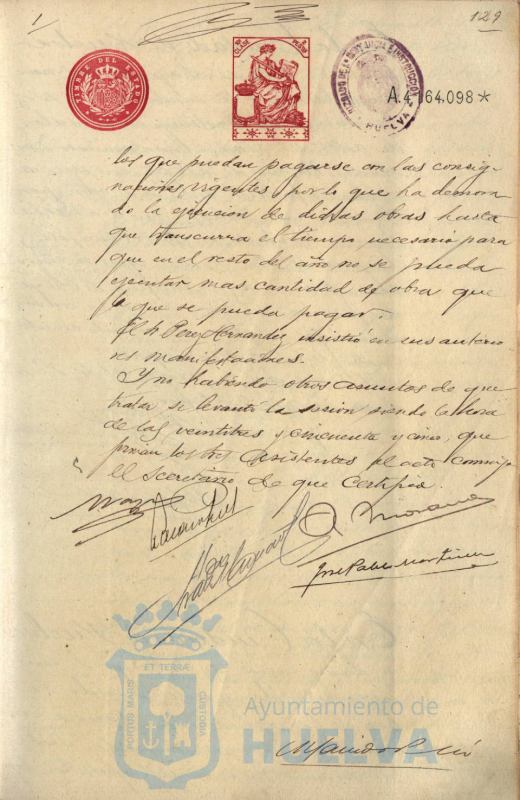 129
TIMBRE DEL ESTADO
CLASE
A.4 164.098*
HUELVA
los que puedan pagarse con las consig-
naciones vigentes por lo que ha demora
do la ejecucion de dichas obras hasta
que transcurra el tiempo necesario para
que en el resto del año no se pueda
ejecutar mas cantidad de obra que
la que se pueda pagar.
El Sr Perez Hernandez insistió en sus anterio
res manifestaciones.
Y no habiendo otros asuntos de que
tratar se levantó la sesion siendo la hora
de las veintitres y cincuenta y cinco, que
firman los Sres asistentes al acto conmigo
el Secretario de que certifico.
José Pablo Martinez
PORTUS MARIS ET TERRÆ CUSTODIA
Ayuntamiento de
HUELVA